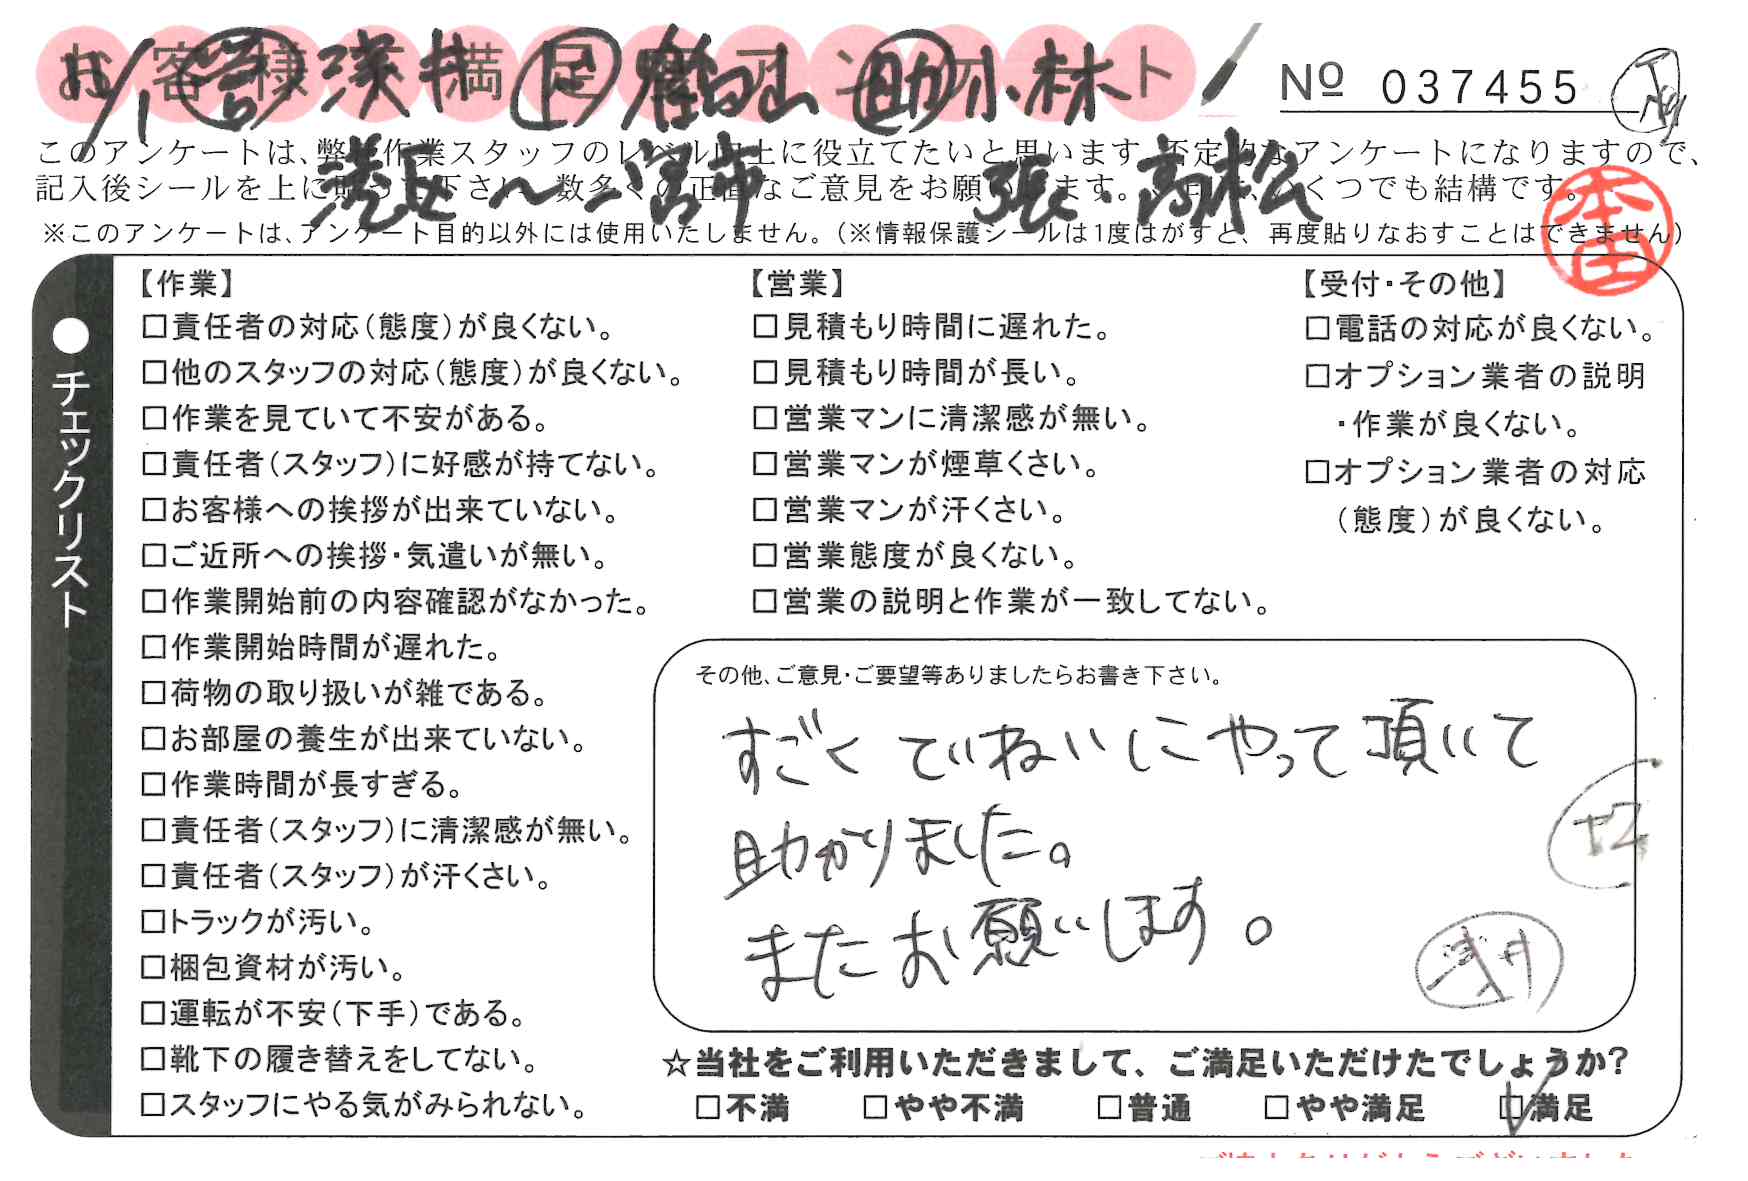 お客様満足度アンケート
8/1 営 浅井 作 鶴山 助 小林
No 037455
このアンケートは、弊社作業スタッフのレベル向上に役立てたいと思います。否定的なアンケートになりますので、
記入後シールを上に貼って下さい。数多くの正直なご意見をお願いします。
いくつでも結構です。
港区〜一宮市 張・高松
※このアンケートは、アンケート目的以外には使用いたしません。(※情報保護シールは1度はがすと、再度貼りなおすことはできません)
本田
●チェックリスト
【作業】
□責任者の対応(態度)が良くない。
□他のスタッフの対応(態度)が良くない。
□作業を見ていて不安がある。
□責任者(スタッフ)に好感が持てない。
□お客様への挨拶が出来ていない。
□ご近所への挨拶・気遣いが無い。
□作業開始前の内容確認がなかった。
□作業開始時間が遅れた。
□荷物の取り扱いが雑である。
□お部屋の養生が出来ていない。
□作業時間が長すぎる。
□責任者(スタッフ)に清潔感が無い。
□責任者(スタッフ)が汗くさい。
□トラックが汚い。
□梱包資材が汚い。
□運転が不安(下手)である。
□靴下の履き替えをしてない。
□スタッフにやる気がみられない。
【営業】
□見積もり時間に遅れた。
□見積もり時間が長い。
□営業マンに清潔感が無い。
□営業マンが煙草くさい。
□営業マンが汗くさい。
□営業態度が良くない。
□営業の説明と作業が一致してない。
【受付・その他】
□電話の対応が良くない。
□オプション業者の説明
・作業が良くない。
□オプション業者の対応
(態度)が良くない。
その他、ご意見・ご要望等ありましたらお書き下さい。
すごくていねいにやって頂いて
助かりました。
またお願いします。
浅井
☆当社をご利用いただきまして、ご満足いただけたでしょうか?
□不満 □やや不満 □普通 □やや満足 □満足